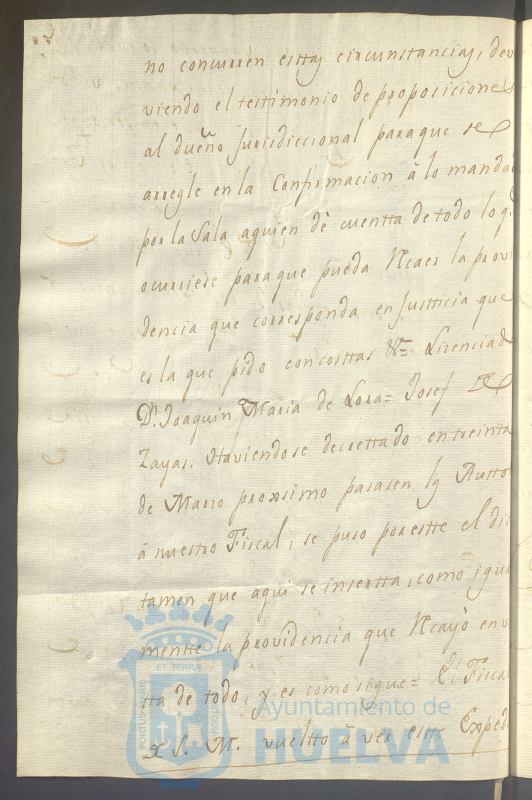 no concurren esttas circunstancias, dev
viendo el testimonio de proposiciones
al dueño Jurisdiccional para que se
arregle en la Confirmacion â lo manda
por la Sala aquien dê cuentta de todo lo q.
ocurriese para que pueda Rcaer la provi
dencia que corresponda en Justticia que
es la que pido con costtas &ª= Lizenciad
Dn. Joaquin Maria de Lora= Josef de
Zayas. Haviendose decrettado en treinta
de Marzo proximo pasasen los Autto
â nuestro Fiscal, se puso por estte el dic
tamen que aqui se insertta, como igual
mentte la providencia que Rcayô en vi
tta de todo, y es como sigue= El Fiscal
de S. M. vueltto â ver estte Exped
ET TERRÆ
Ayuntamiento de
HUELVA